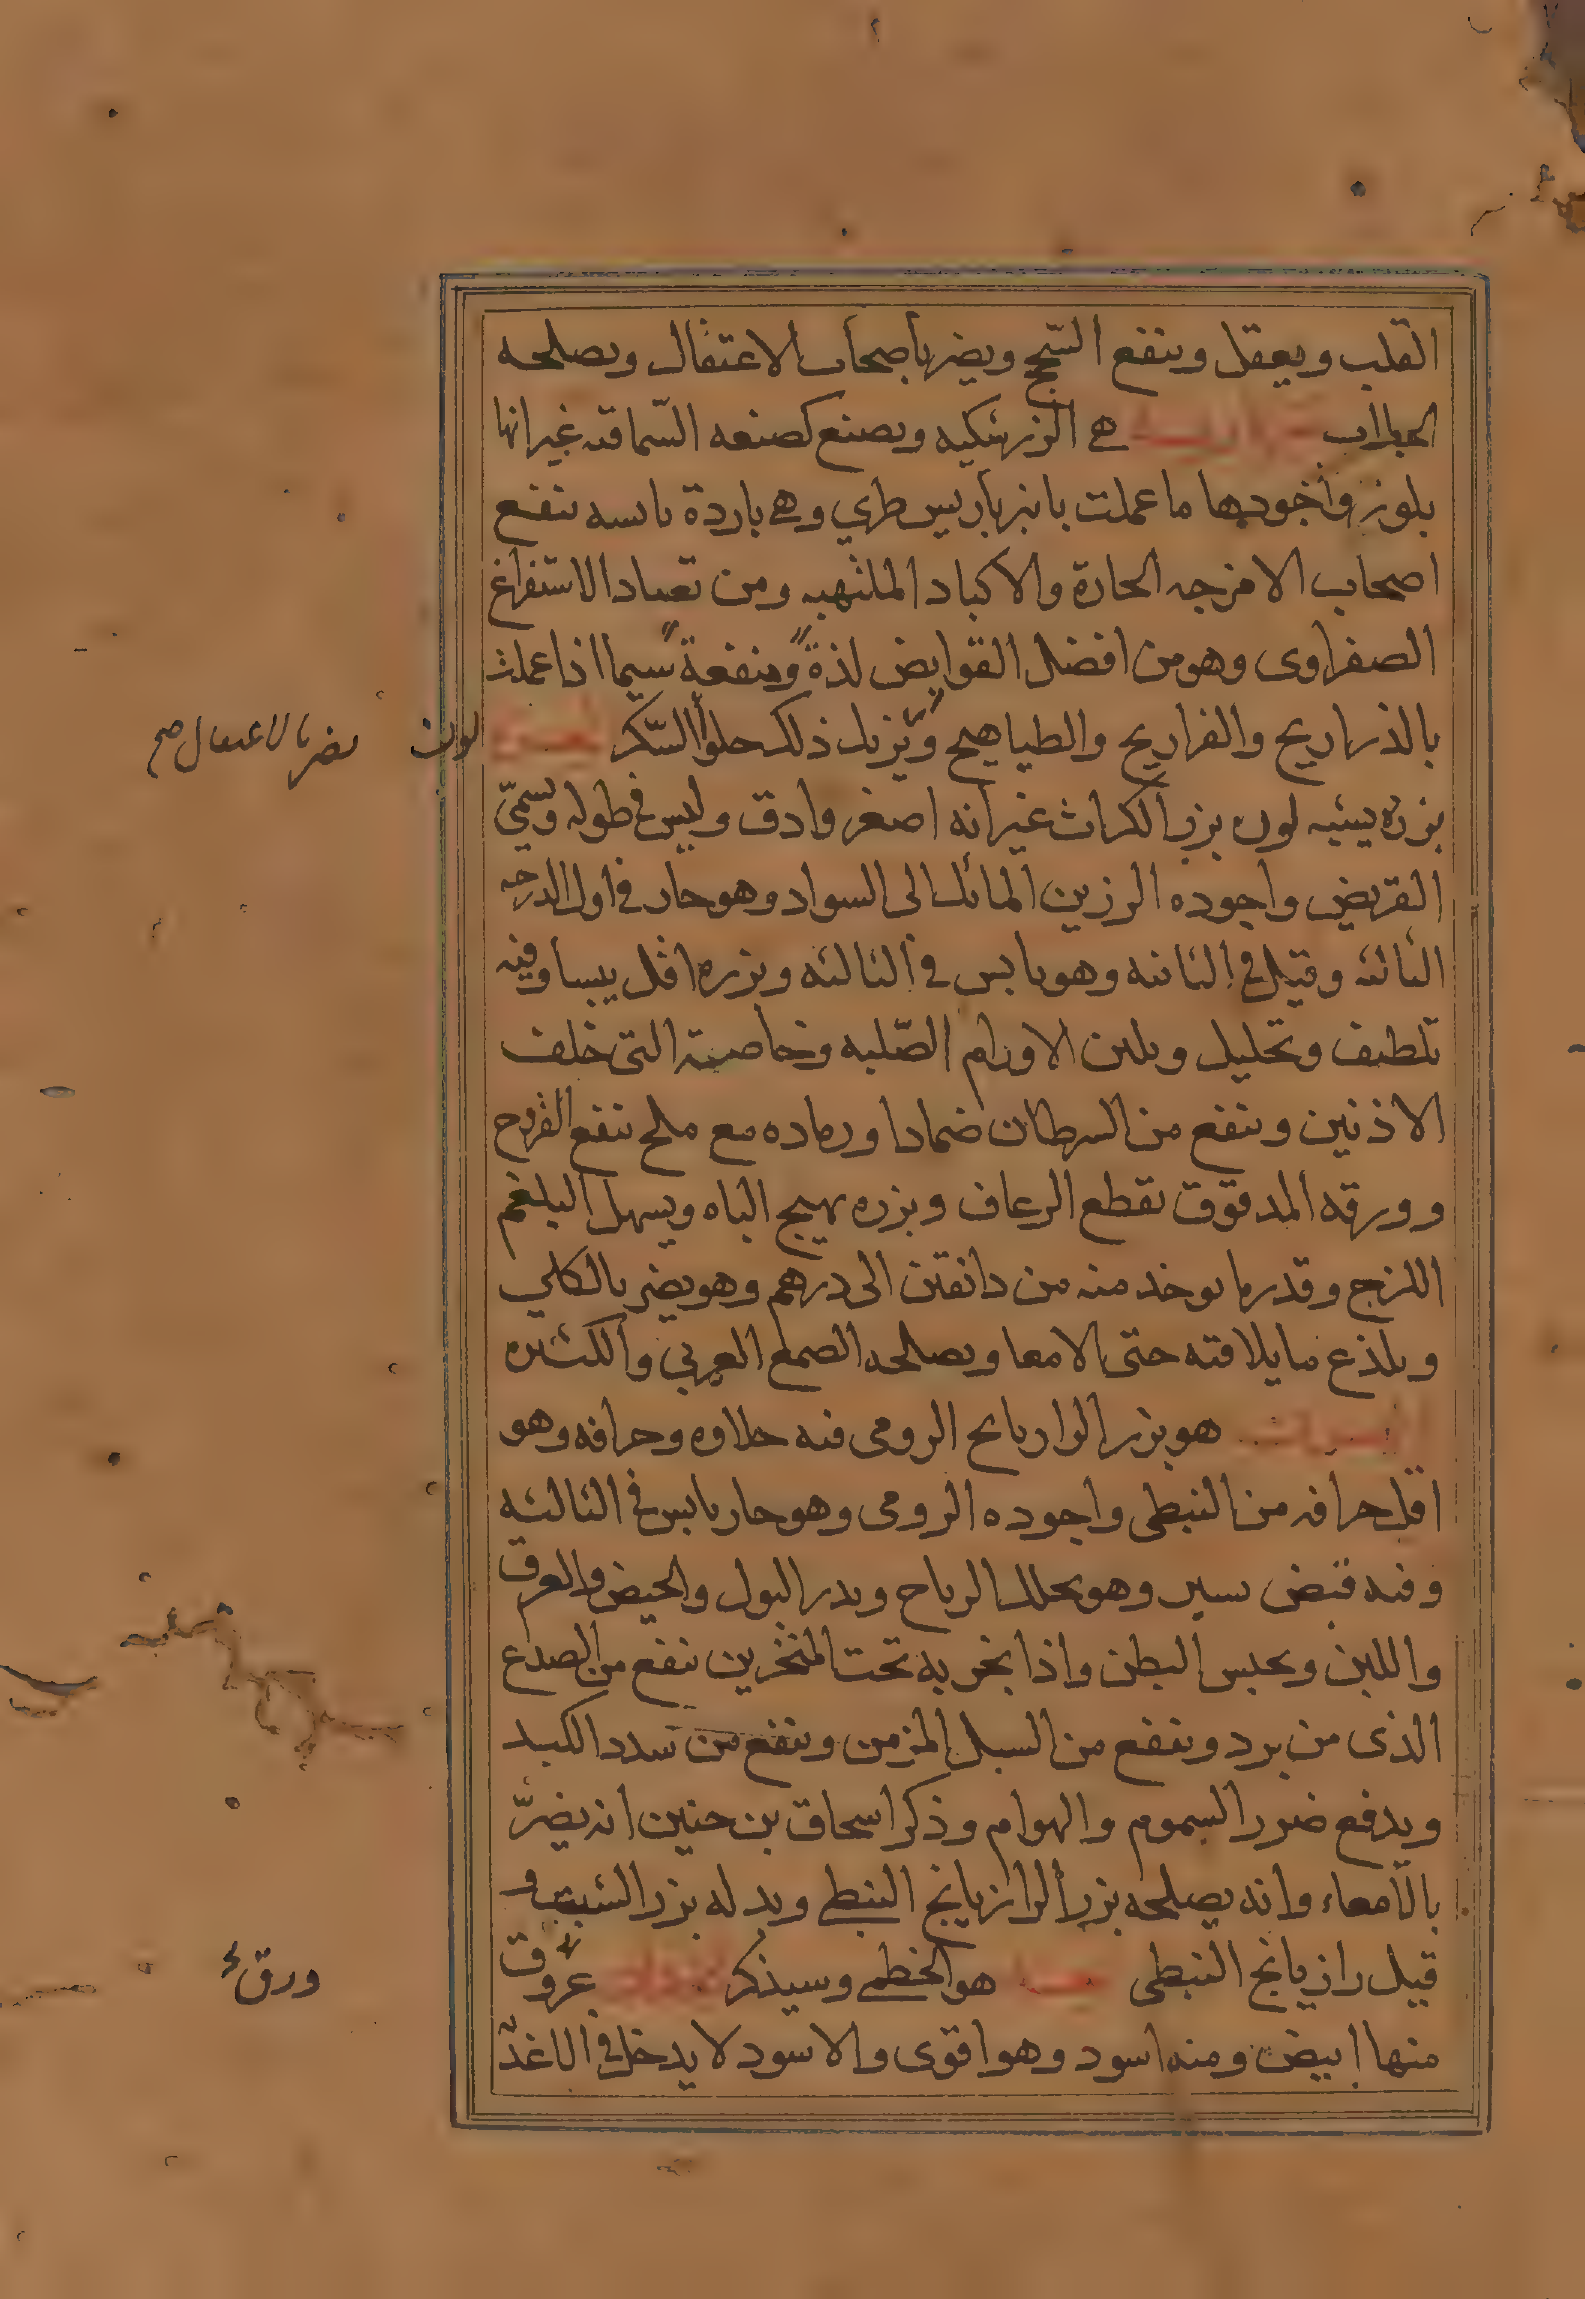 القلب ويعقل وينفع السّحج ويضر بأصحاب الاعتقال ويصلحه
الجلاب هي الزرشكيه ويصنع كصنعه السّماقه غير انها
بلوز وأجودها ما عملت بانبرباريس طري وهي باردة يابسه تنفع
اصحاب الامزجه الحارة والاكباد الملتهبه ومن تعتاد الاستفراغ
الصفراوى وهو من افضل القوابض لذةً ومنفعةً سيما اذا عملت
بالذراريح والفراريح والطياهيج ويزيل ذلك حلوا السّكر
بزره يشبه لون بزر الكراث غير انه اصغر وادق وليس في طوله ويسمّى
القريض واجوده الرزين المائل الى السواد وهو حار في اول الدرجه
الثالثه وقيل في الثانيه وهو يابس في الثالثه وبزره اقل يبسا وفيه
تلطيف وتحليل ويلين الاورام الصّلبه وخاصيته التى خلف
الاذنين وينفع من السرطان ضمادا ورماده مع ملح ينفع القروح
وورقه المدقوق يقطع الرعاف وبزره يهيج الباه ويسهل البلغم
اللزج وقدر ما يوخذ منه من دانقين الى درهم وهو يضر بالكلي
ويلذع ما يلاقيه حتى الامعا ويصلحه الصمغ العربي والكثيره
هو بزر الرازيانج الرومى فيه حلاوه وحرافه وهو
اقل حرافه من النبطى واجوده الرومى وهو حار يابس في الثالثه
وفيه قبض يسير وهو يحلل الرياح ويدر البول والحيض والعرق
واللبن ويحبس البطن واذا بخر به تحت المنخرين ينفع من الصدع
الذى من برد وينفع من السبل المزمن وينفع من سدد الكبد
ويدفع ضرر السموم والهوام وذكر اسحاق بن حنين انه يضرّ
بالأمعاء وانه يصلحه بزر الرازيانج النبطي وبدله بزر الشبت و
قيل رازيانج النبطى هو الخطمي وسيذكر عروق
منها ابيض ومنه اسود وهو اقوى والاسود لا يدخل في الاغذ
يضر بالاعتقال صح
لون
ورق